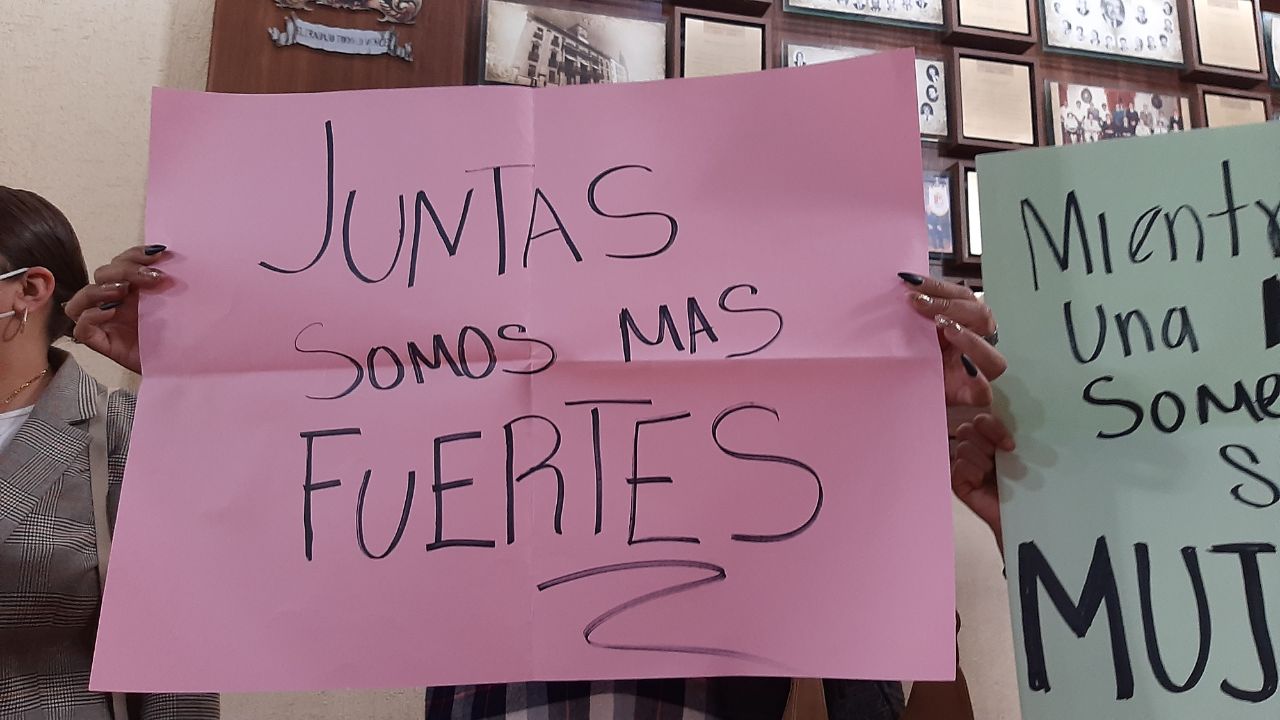 JUNTAS
SOMOS MAS
FUERTES
Mientr
Una
Some
S
MUJ